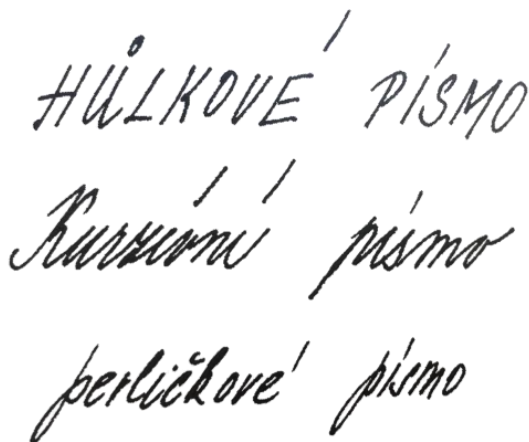 HŮLKOVÉ PÍSMO
Kurzívní písmo
perličkové písmo